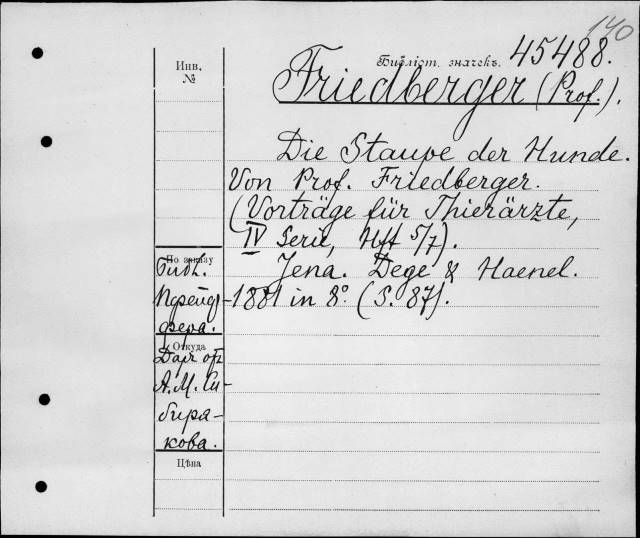 140
Инв.
№
Библіот. значекъ.
45488.
Friedberger (Prof.).
Die Staupe der Hunde.
Von Prof. Friedberger.
(Vorträge für Thierärzte,
IV Serie, Hft 5/7).
Jena. Dege & Haenel.
1881 in 8°. (S. 87).
По заказу
Библ.
Пфейф-
фера.
Откуда
Даръ от
А. М. Си-
биря-
кова.
Цѣна